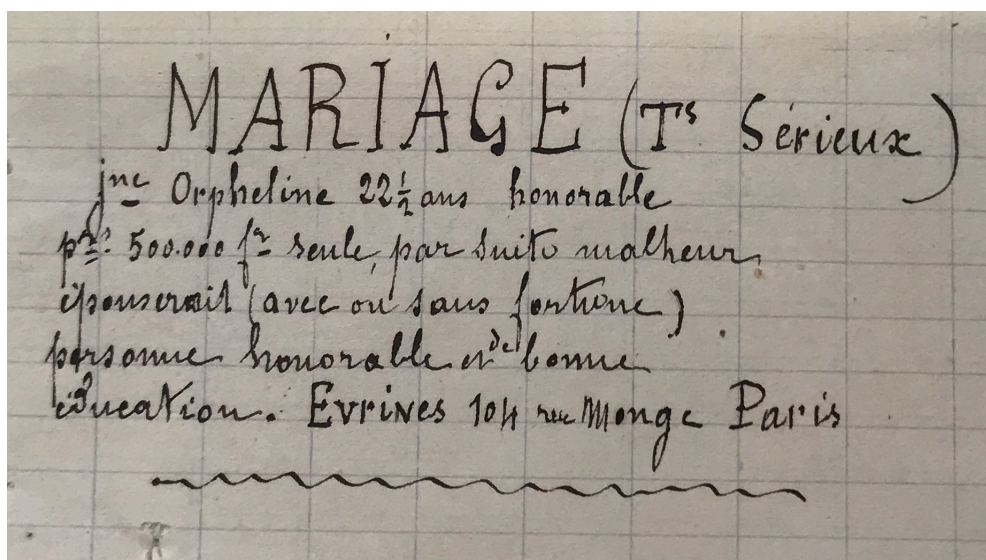 MARIAGE (Ts Sérieux)
jne Orpheline 22 1/2 ans honorable
500.000 fr seule, par suite malheur,
épouserait (avec ou sans fortune)
personne honorable et de bonne
éducation. Evrines 104 rue Monge Paris